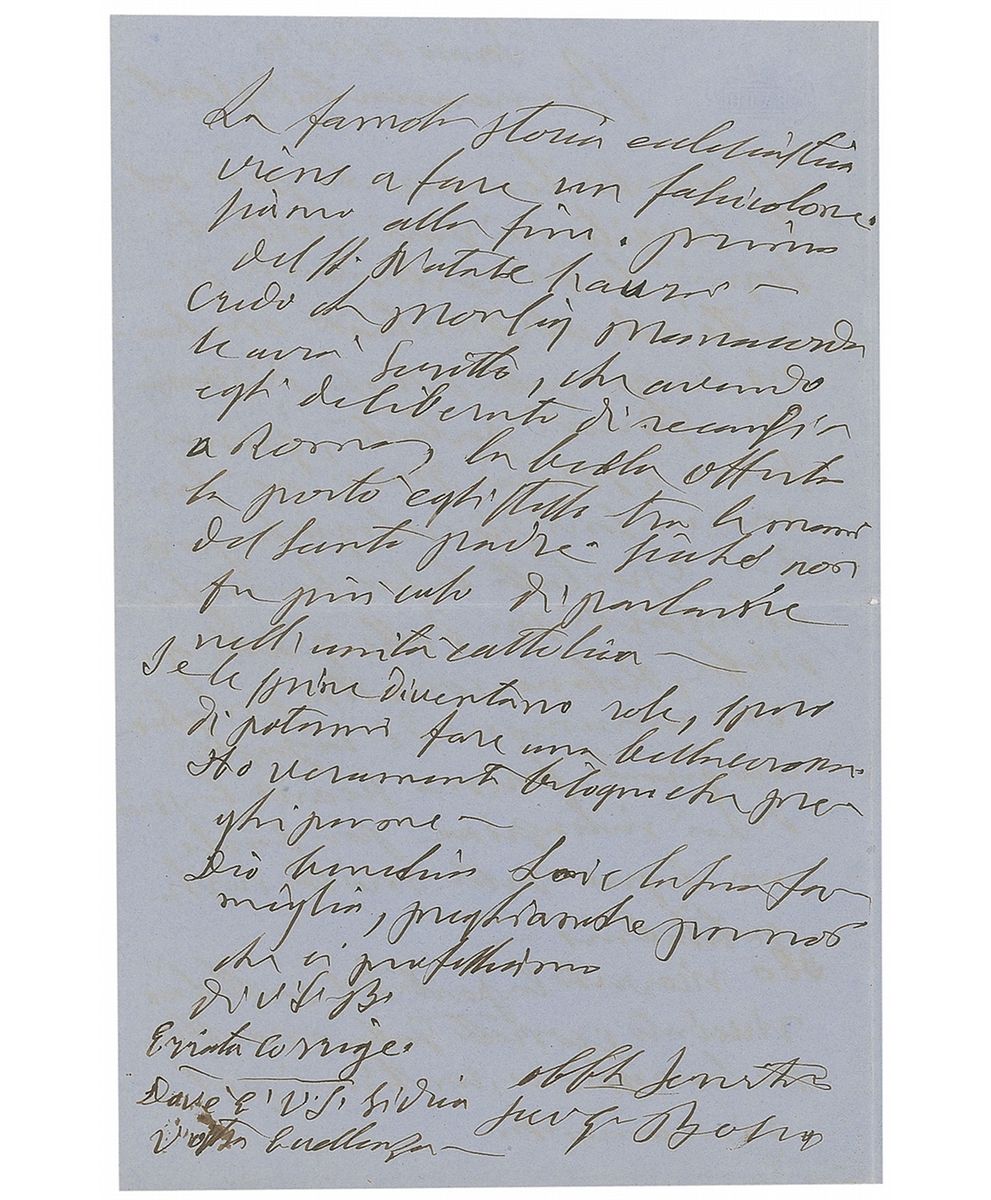 La famosa storia ecclesiastica
viene a fare un fascicolone.
siamo alla fine. prima
del S. Natale l'avrà —
Credo che Monsig. Manacorda
le avrà scritto, che avendo
egli deliberato di recarsi
a Roma, la bella offerta
la portò egli stesso tra le mani
del santo padre. sicché non
fu più caso di parlarne
nell'unità cattolica —
Se le spine diventano rose, spero
di potermi fare una bella corona.
Ho veramente bisogno che pre-
ghi per me —
Dio benedica Lei e la sua fa-
miglia, preghiamolo per noi
che ci professiamo
Di V. S. B.
Errata corrige.
Dove è V. S. si dica
Vostra Eccellenza —
obbl. servitore
Sac. G. Bosco